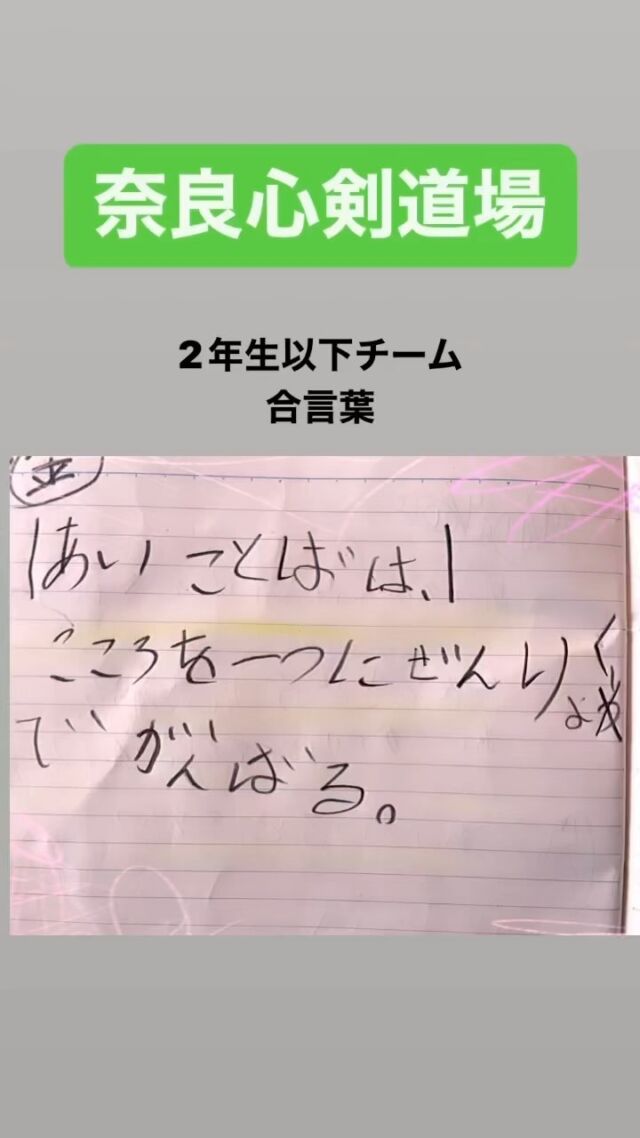 奈良心剣道場
2年生以下チーム
合言葉
あいことばは、
こころを一つにぜんりょく
でがんばる。